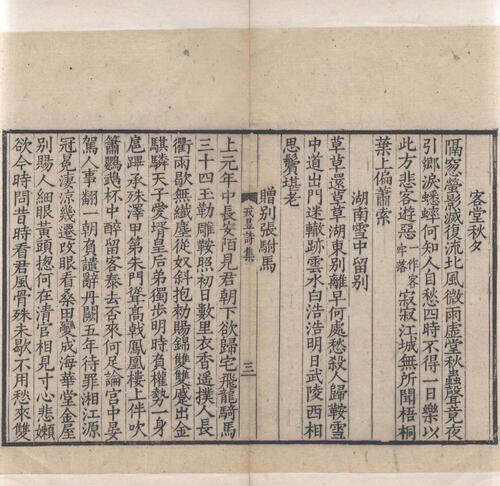 客堂秋夕
隔窓螢影滅復流北風微雨虛堂秋蟲聲竟夜
引鄉淚蟋蟀何知人自愁四時不得一日樂以
此方悲客遊惡一作客牢落寂寂江城無所聞梧桐
葉上偏蕭索
湖南雪中留別
草草還草草湖東別離早何處愁殺人歸鞍雪
中道出門迷轍跡雲水白浩浩明日武陵西相
思鬢堪老
贈別張駙馬
戎昱詩集 三
上元年中長安陌見君朝下欲歸宅飛龍騎馬
三十四玉勒雕鞍照初日數里衣香遥撲人長
衢雨歇無纖塵從奴斜抱勑賜錦雙雙蹙出金
騏驎天子愛壻皇后弟獨步明時負權勢一身
扈蹕承殊澤甲第朱門聳高戟鳳凰樓上伴吹
簫鸚鵡杯中醉留客泰去否來何足論宮中晏
駕人事翻一朝負譴辭丹闕五年待罪湘江源
冠冕淒涼幾遷改眼看桑田變成海華堂金屋
別賜人細眼黃頭摠何在渚宮相見寸心悲嬾
欲今時問昔時看君風骨殊未歇不用愁來雙